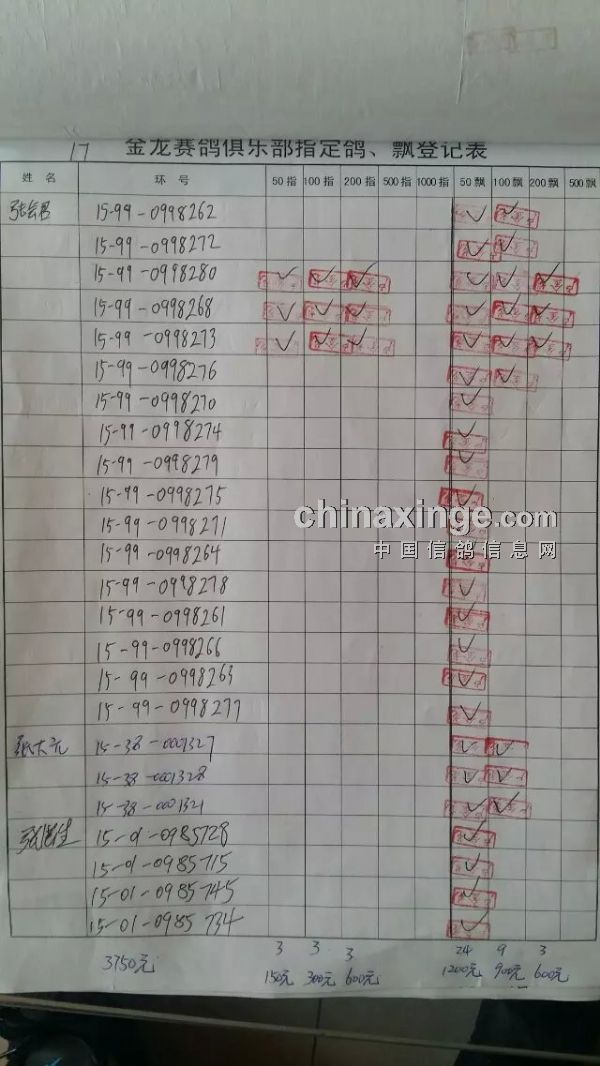 17 金龙赛鸽俱乐部指定鸽、飘登记表
姓名 环号 50指 100指 200指 500指 1000指 50飘 100飘 200飘 500飘
15-99-0998262 ✓ ✓
15-99-0998272 ✓ ✓
15-99-0998280 ✓ ✓ ✓ ✓ ✓ ✓
15-99-0998268 ✓ ✓ ✓ ✓ ✓ ✓
15-99-0998273 ✓ ✓ ✓ ✓ ✓ ✓
15-99-0998276 ✓ ✓
15-99-0998270 ✓
15-99-0998274 ✓
15-99-0998279 ✓
15-99-0998275 ✓
15-99-0998271
chinaxinge.com
15-99-0998264 ✓
中国信鸽信息网
15-99-0998278 ✓
15-99-0998261 ✓
15-99-0998266 ✓
15-99-0998263 ✓
15-99-0998277 ✓
张大元 15-38-0001327 ✓ ✓
15-38-0001328 ✓ ✓
15-38-0001321 ✓ ✓
15-01-0985728 ✓
15-01-0985715 ✓
15-01-0985745 ✓
15-01-0985734 ✓
3 3 3 24 9 3
3750元 150元 300元 600元 1200元 900元 600元